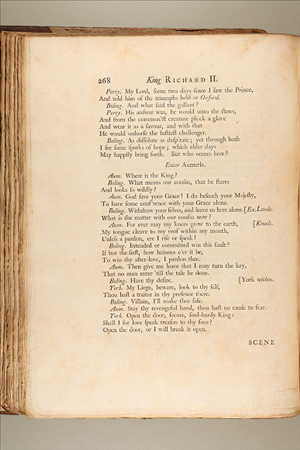 268 King RICHARD II.
Percy. My Lord, some two days since I saw the Prince,
And told him of the triumphs held at Oxford.
Boling. And what said the gallant?
Percy. His answer was, he would unto the stews,
And from the common'st creature pluck a glove
And wear it as a favour, and with that
He would unhorse the lustiest challenger.
Boling. As dissolute as desp'rate; yet through both
I see some sparks of hope; which elder days
May happily bring forth. But who comes here?
Enter Aumerle.
Aum. Where is the King?
Boling. What means our cousin, that he stares
And looks so wildly?
Aum. God save your Grace! I do beseech your Majesty,
To have some conf'rence with your Grace alone.
Boling. Withdraw your selves, and leave us here alone. [Ex. Lords.
What is the matter with our cousin now?
Aum. For ever may my knees grow to the earth, [Kneels.
My tongue cleave to my roof within my mouth,
Unless a pardon, ere I rise or speak!
Boling. Intended or committed was this fault?
If but the first, how heinous e'er it be,
To win thy after-love, I pardon thee.
Aum. Then give me leave that I may turn the key,
That no man enter 'till the tale be done.
Boling. Have thy desire. [York within.
York. My Liege, beware, look to thy self,
Thou hast a traitor in thy presence there.
Boling. Villain, I'll make thee safe.
Aum. Stay thy revengeful hand, thou hast no cause to fear.
York. Open the door, secure, fool-hardy King:
Shall I for love speak treason to thy face?
Open the door, or I will break it open.
SCENE